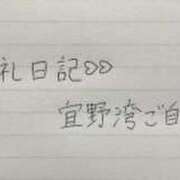 礼日記♡♡
宜野湾ご自